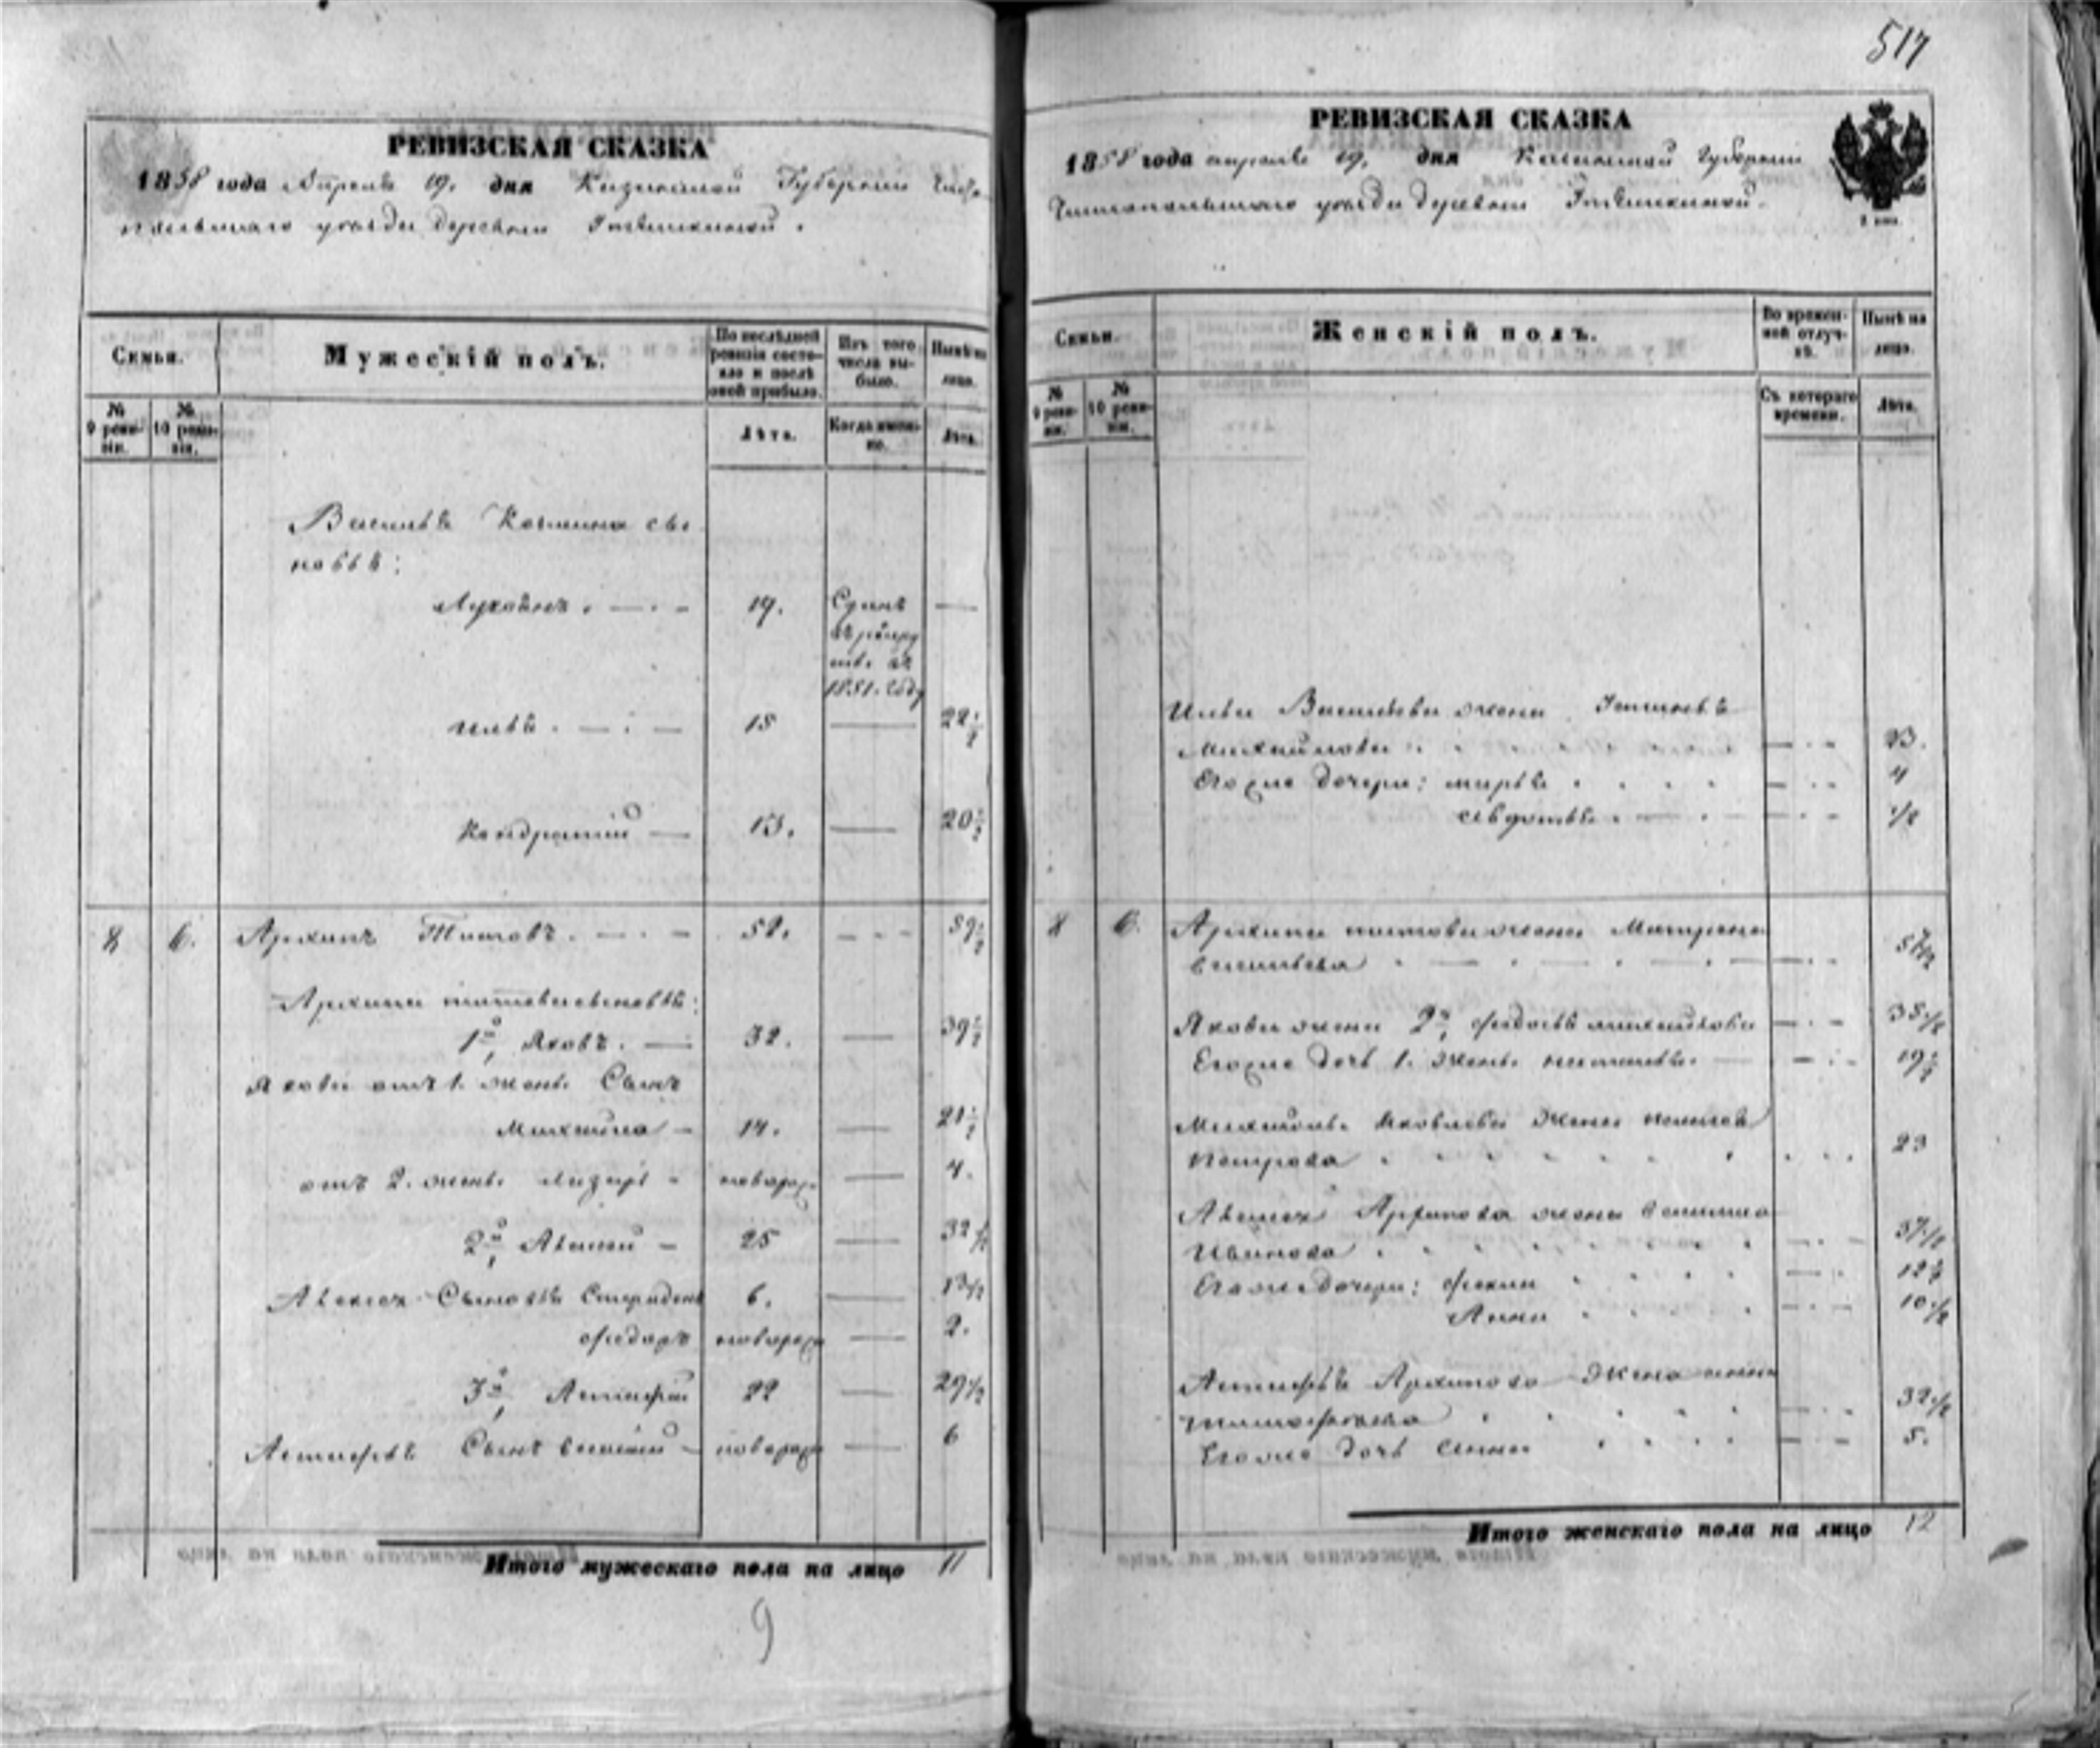 517
РЕВИЗСКАЯ СКАЗКА
1858 года Апреля 19. дня Казанской Губернии Чисто
польскаго уезда деревни
Семьи.
Мужескій полъ.
По послѣдней ревизіи состояло и послѣ оной прибыло.
Изъ того числа выбыло.
Нынѣ на лицо.
№ 9 ревизіи.
№ 10 ревизіи.
Лѣта.
Когда именно.
Лѣта.
Василья Космина сы
новья:
19. Сданъ —
въ рекру
ты въ
1851. году
Илья . — 15 — 22 1/2
Кондратій — 13. — 20 1/2
8 6. Архипъ Титовъ . — 52. — 59 1/2
Архипа Титова сыновья:
1й, Яковъ . — 32. — 39 1/2
Якова отъ 1. жены Сынъ
Михайла — 14. — 21 1/2
отъ 2. жены Лазарь — новорож — 4.
2й, Алексей — 25 — 32 1/2
Алексея Сыновья Спиридонъ 6. — 13 1/2
Федоръ новорож — 2.
3й, Астафій 22 — 29 1/2
Астафья Сынъ Василій — новорож — 6
Итого мужескаго пола на лицо 11
9
РЕВИЗСКАЯ СКАЗКА
1858 года апреля 19. дня Казанской Губернии
Чистопольскаго уезда деревни
Семьи.
Женскій полъ.
Во временной отлучкѣ.
Нынѣ на лицо.
№ 9 ревизіи.
№ 10 ревизіи.
Съ котораго времени.
Лѣта.
Ильи Васильева жена Татьяна
Михайлова — 23.
Его же дочери: Марья — 4
Авдотья — 1/2
8 6. Архипа Титова жена Матрена
Васильева — 57 1/2
Якова жена 2я, Федосья Михайлова — 35 1/2
Его же дочь 1. жены Наталья — 19 1/2
Михайлы Яковлева жена
Петрова 23
Алексея Архипова жена
Иванова — 37 1/2
Его же дочери: Фекла — 12 1/2
Анна — 10 1/2
Астафья Архипова жена Анна
Тимофеева — 32 1/2
Его же дочь Анна — 5.
Итого женскаго пола на лицо 12